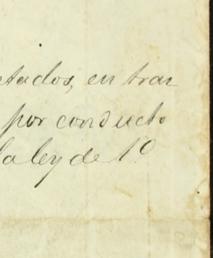 ctados, en tran
por conducto
la ley de 1º